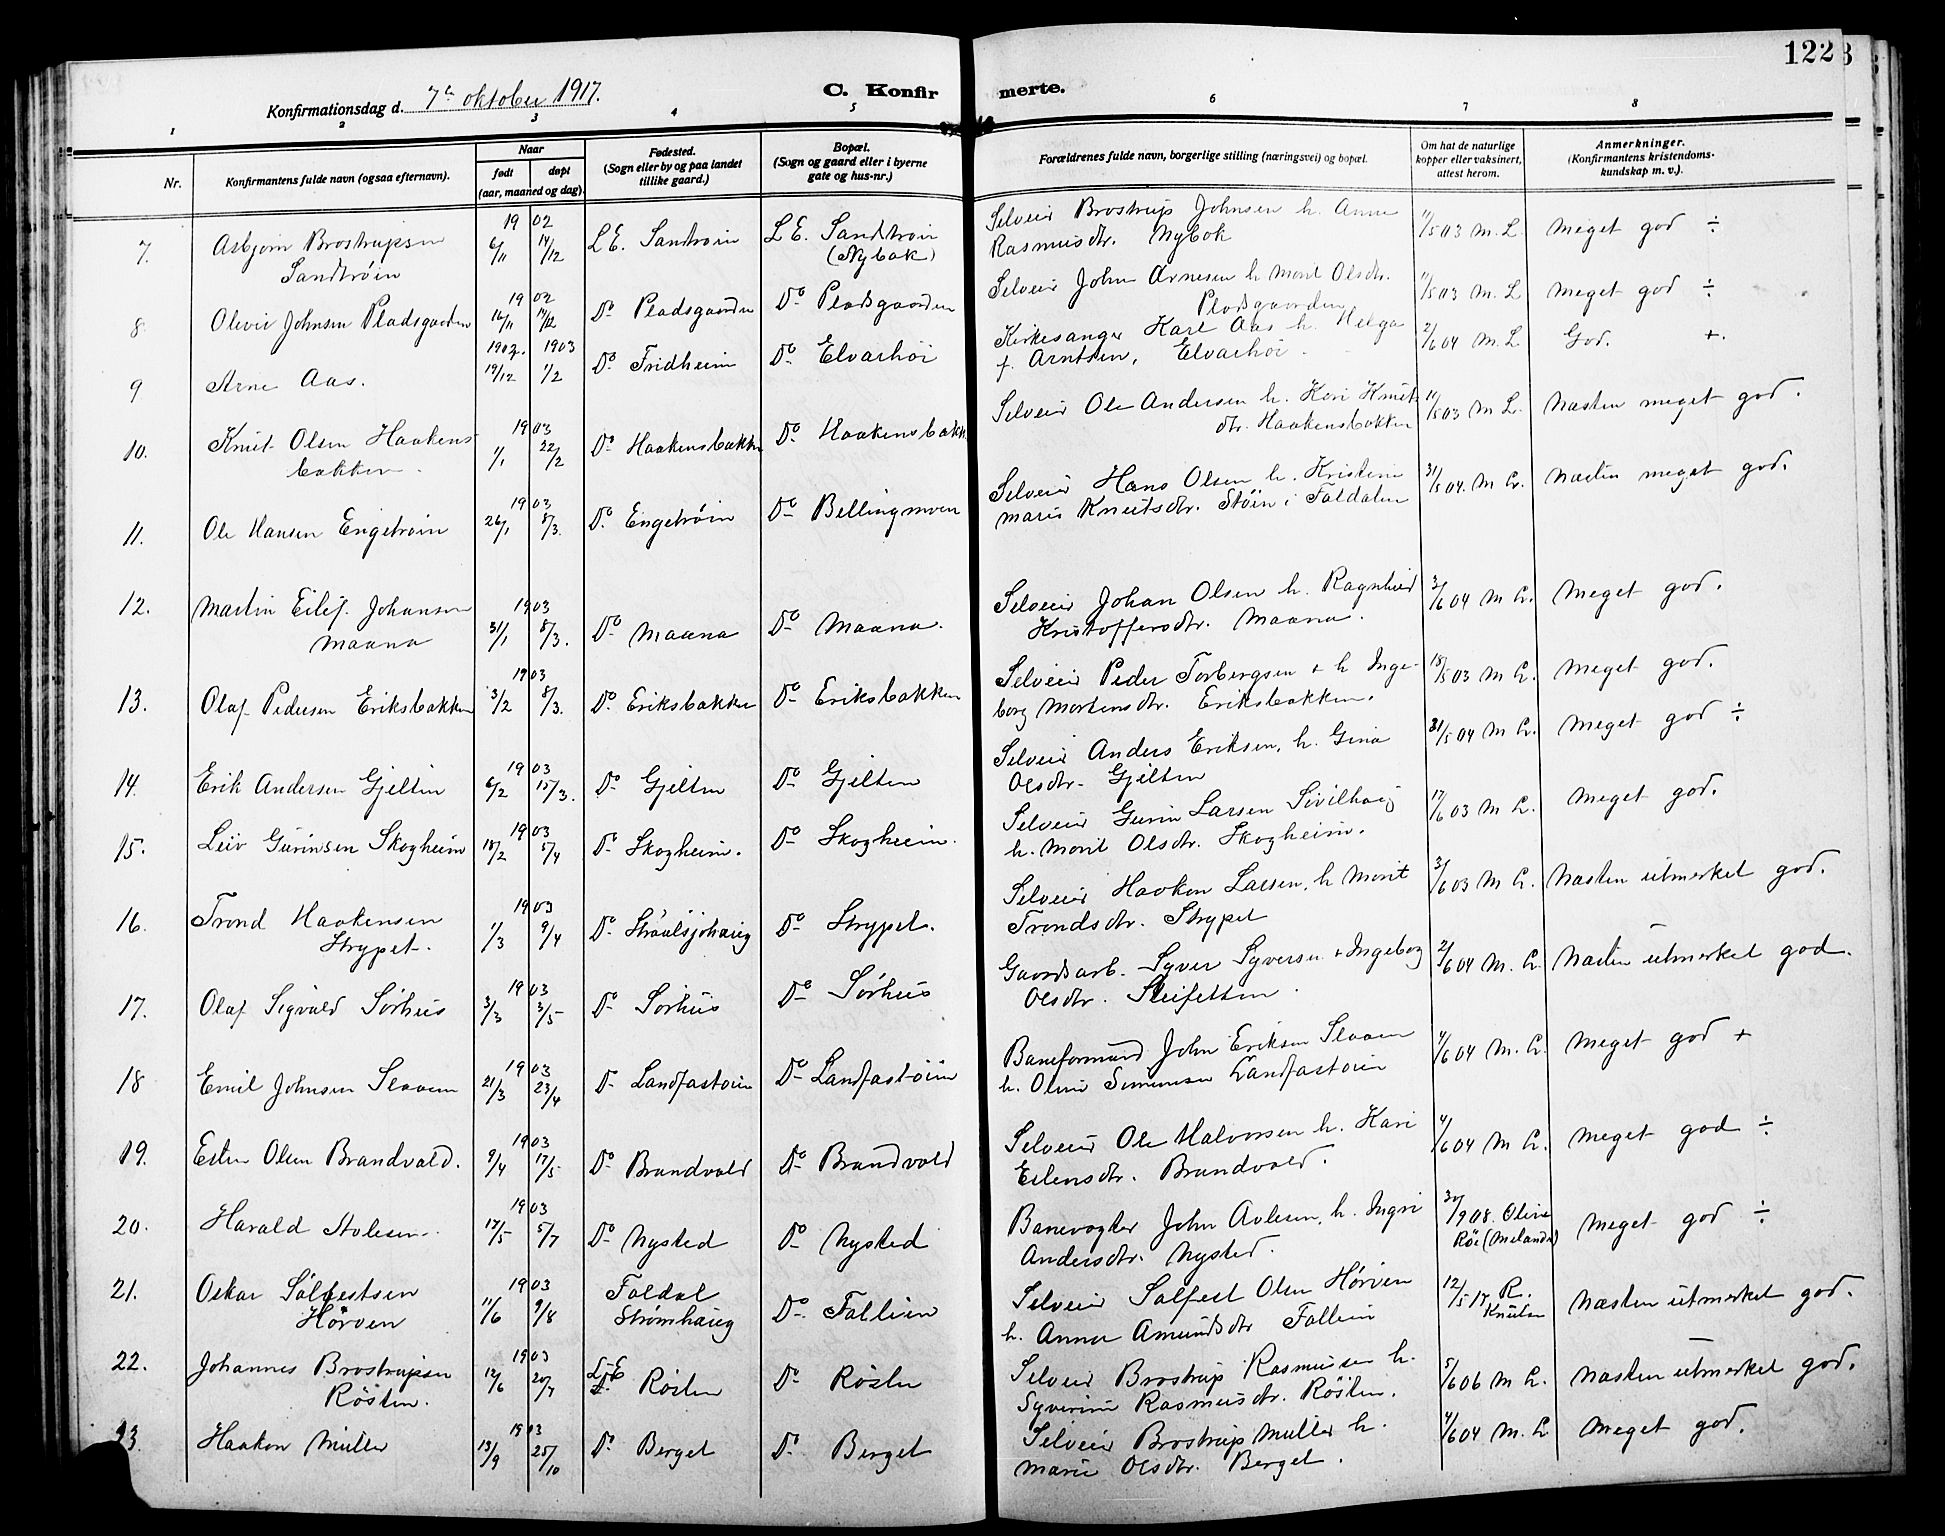 122
Konfirmationsdag d. 7de oktober 1917.
C. Konfirmerte.
1 2 3 4 5 6 7 8
Nr.
Konfirmantens fulde navn (ogsaa efternavn).
Naar
født døpt
(aar, maaned og dag).
Fødested.
(Sogn eller by og paa landet
tillike gaard.)
Bopæl.
(Sogn og gaard eller i byerne
gate og hus-nr.)
Forældrenes fulde navn, borgerlige stilling (næringsvei) og bopæl.
Om hat de naturlige
kopper eller vaksinert,
attest herom.
Anmerkninger.
(Konfirmantens kristendoms-
kundskap m. v.).
7. Asbjørn Brostrupsen Sandtrøin 1902 6/11 14/12 L.E. Sandtrøin L.E. Sandtrøin (Nybak) Selveier Brostrup Johnsen h. Anne Rasmusdtr. Nybak 11/5 03 M. L. Meget god ÷
8 Oleiv Johnsen Pladsgaarden 1902 16/11 14/12 Do Pladsgaarden Do Pladsgaarden Selveier John Arnesen h. Marit Olsdtr. Pladsgaarden 11/5 03 M. L. Meget god ÷
9 Arne Aas. 1902. 1903 19/12 1/2 Do Fridheim Do Elvarhøi Kirkesanger Karl Aas h. Helga f. Arntsen, Elvarhøi. 2/6 04 M. L. God. +.
10. Knut Olsen Haakensbakken. 1903 1/1 22/2 Do Haakensbakken Do Haakensbakk. Selveier Ole Andersen h. Kari Knutsdtr. Haakensbakken 11/5 03 M L. Næsten meget god.
11. Ole Hansen Engetrøin 1903 26/1 8/3. Do Engetrøin Do Bellingmoen Selveier Hans Olsen h. Kristine Marie Knutsdtr. Støin i Foldalen 31/5 04. M L. Næsten meget god.
12. Martin Eilif Johansen Maana 1903 31/1 8/3. Do Maana Do Maana. Selveier Johan Olsen h. Ragnhild Kristoffersdtr. Maana. 3/6 04 M L. Meget god.
13. Olaf Pedersen Eriksbakken 1903 3/2 8/3. Do Eriksbakken Do Eriksbakken Selveier Peder Torbergsen + h Ingeborg Mortensdtr. Eriksbakken. 18/5 03 M L. Meget god.
14. Erik Andersen Gjelten 1903 6/2 15/3. Do Gjelten Do Gjelten Selveier Anders Eriksen, h. Gina Olsdtr. Gjelten 31/5 04 M L. Meget god ÷
15. Leiv Gurinsen Skogheim 1903 18/2 5/4 Do Skogheim. Do Skogheim. Selveier Gurin Larsen Sivilhaug h. Marit Olsdtr. Skogheim. 17/6 03 M L. Meget god.
16. Trond Haakensen Strypet. 1903 1/3 9/4 Do Straalsjøhaug Do Strypet. Selveier Haakon Larsen, h Marit Trondsdtr. Strypet 3/6 03 M L. Næsten utmerket god.
17. Olaf Sigvald Sørhus 1903 3/3 3/5 Do Sørhus Do Sørhus Gaardsarb. Syver Syversen + Ingeborg Olsdtr. Sleifetten. 2/6 04 M. L. Næsten utmerket god.
18 Emil Johnsen Slaaen 1903 21/3 23/4 Do Landfastøien Do Landfastøien Baneformand John Eriksen Slaaen h. Oline Simensen Landfastøien 4/6 04 M. L. Meget god +
19. Esten Olsen Brandvold. 1903 9/4 17/5 Do Brandvold Do Brandvold Selveier Ole Halvorsen h. Kari Estensdtr. Brandvold. 4/6 04 M L. Meget god ÷
20. Harald Avlesen. 1903 17/5 5/7 Do Nysted Do Nysted Banevogter John Avlesen, h. Ingri Andersdtr. Nysted. 30/9 08. Oline Røe (Melanda) Meget god ÷
21. Oskar Sølfestsen Hørven 1903 11/6 9/8 Foldal Strømhaug Do Follien Selveier Salfest Olsen Hørven h. Anna Amundsdtr Follien 12/5 17 R. Knutsen Næsten utmerket god.
22. Johannes Brostrupsen Røsten. 1903 12/6 20/7 L.E. Røsten Do Røsten Selveier Brostrup Rasmussen h. Syverine Rasmusdtr. Røsten. 5/6 06 M L. Næsten utmerket god.
23. Haakon Müller 1903 13/9 25/10 Do Berget Do Berget Selveier Brostrup Müller h. Marie Olsdtr. Berget. 4/6 04 M. L Meget god.